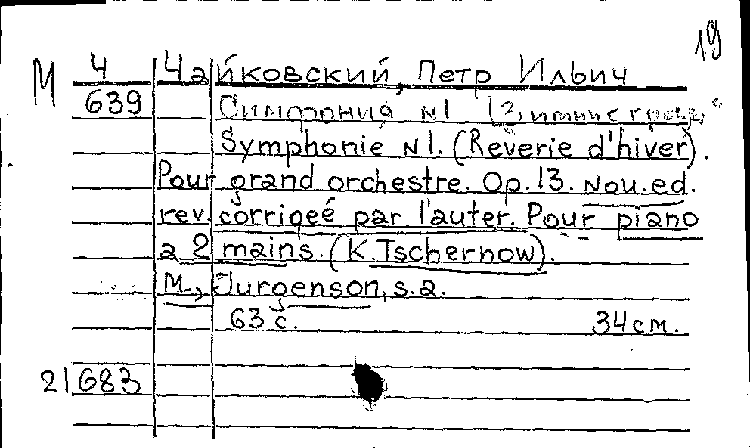 19
М 4 Чайковский, Петр Ильич
639 Симфония №1 (Зимние грезы)
Symphonie N1. (Rêverie d'hiver).
Pour grand orchestre. Op. 13. Nou. ed.
rev. corrigeé par l'auter. Pour piano
a 2 mains. (K. Tschernow).
M., Jurgenson, s.a.
63 с. 34 см.
21683